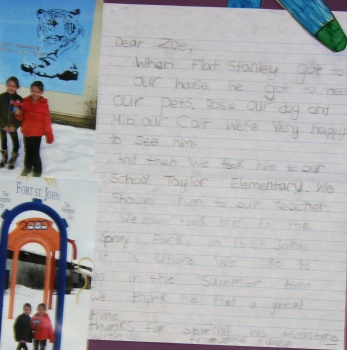 Dear Zoe,
When Flat Stanley got to
our house, he got to meet
our pets. Zoee our dog and
Mia our Cat were very happy
to see him.
And then we took him to our
School Taylor Elementary. We
Showed him to our teacher.
We also took over to the
Spray Park in Fort St. John
it is where we like to
go in the Summer time
we think he had a great
time.
thanks for sharing his adventure
with us.
FORT ST. JOHN
2000